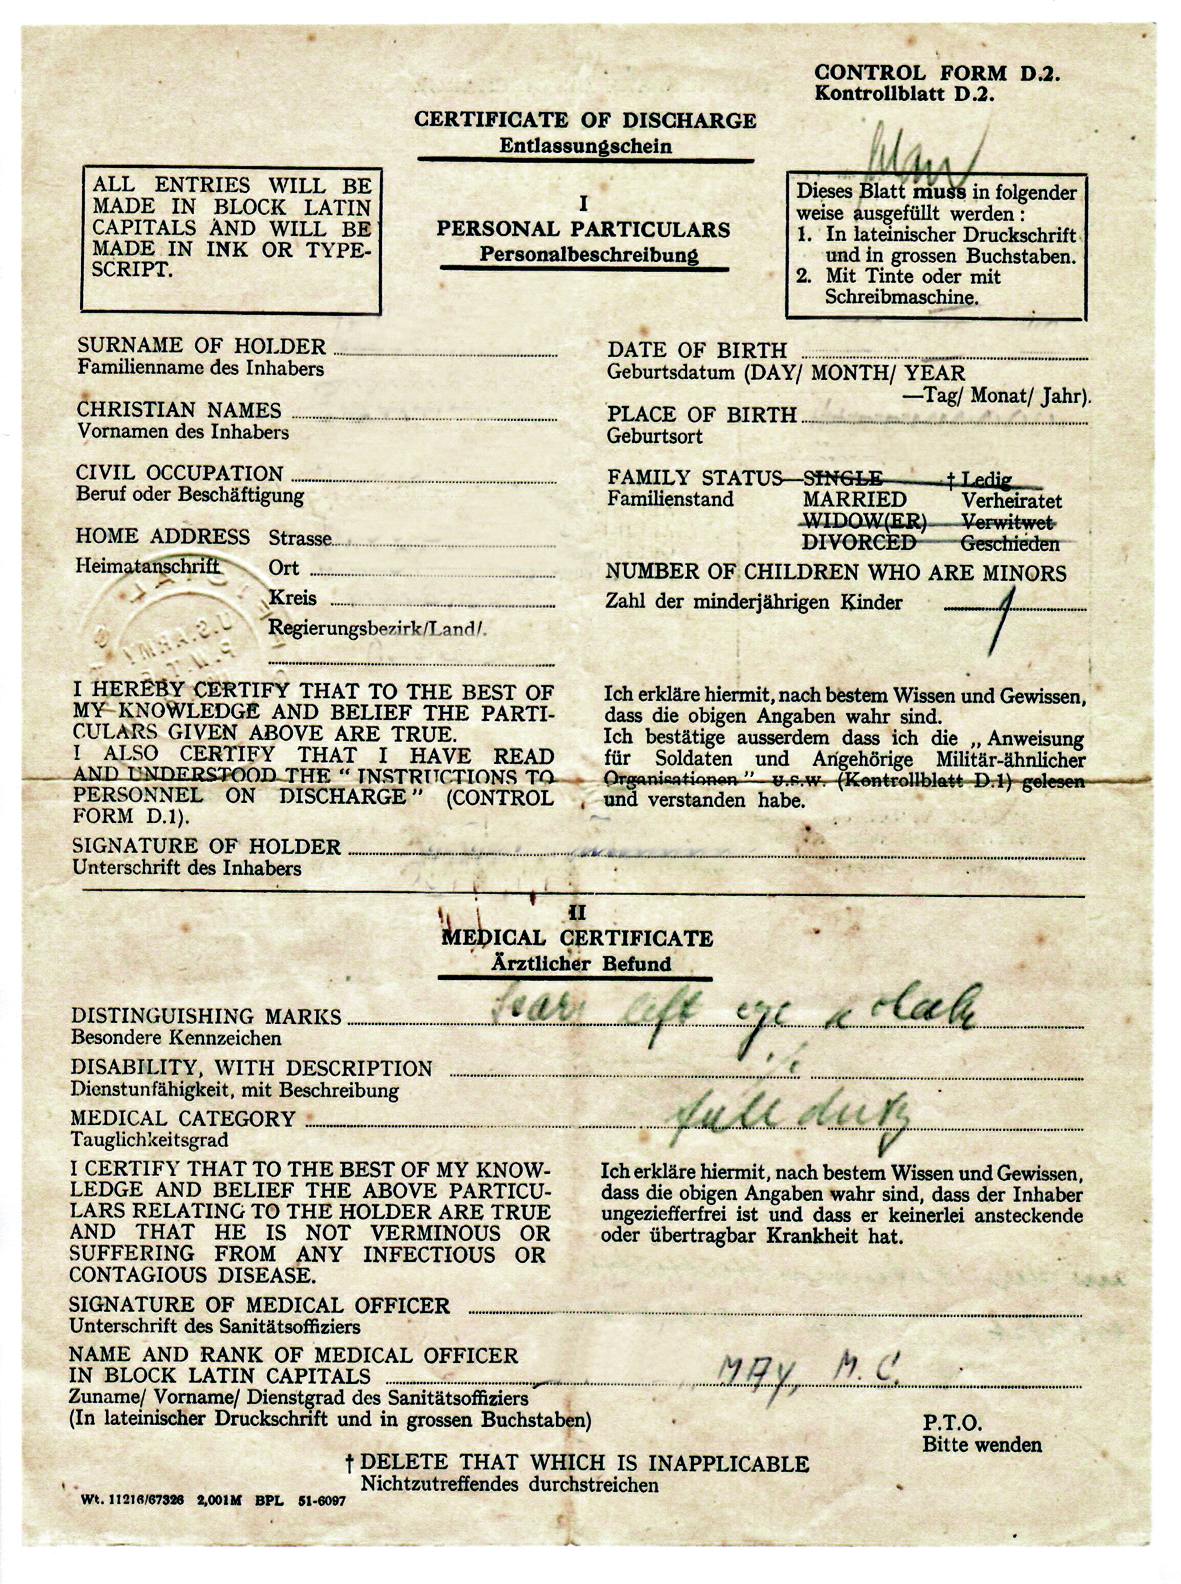 CONTROL FORM D.2.
Kontrollblatt D.2.
CERTIFICATE OF DISCHARGE
Entlassungschein
ALL ENTRIES WILL BE
MADE IN BLOCK LATIN
CAPITALS AND WILL BE
MADE IN INK OR TYPE-
SCRIPT.
I
PERSONAL PARTICULARS
Personalbeschreibung
Dieses Blatt muss in folgender
weise ausgefüllt werden :
1. In lateinischer Druckschrift
und in grossen Buchstaben.
2. Mit Tinte oder mit
Schreibmaschine.
SURNAME OF HOLDER
Familienname des Inhabers
CHRISTIAN NAMES
Vornamen des Inhabers
CIVIL OCCUPATION
Beruf oder Beschäftigung
HOME ADDRESS Strasse
Heimatanschrift Ort
Kreis
Regierungsbezirk/Land/.
U.S. ARMY
DATE OF BIRTH
Geburtsdatum (DAY/ MONTH/ YEAR
—Tag/ Monat/ Jahr).
PLACE OF BIRTH
Geburtsort
FAMILY STATUS—SINGLE † Ledig
Familienstand MARRIED Verheiratet
WIDOW(ER) Verwitwet
DIVORCED Geschieden
NUMBER OF CHILDREN WHO ARE MINORS
Zahl der minderjährigen Kinder 1
I HEREBY CERTIFY THAT TO THE BEST OF
MY KNOWLEDGE AND BELIEF THE PARTI-
CULARS GIVEN ABOVE ARE TRUE.
I ALSO CERTIFY THAT I HAVE READ
AND UNDERSTOOD THE “ INSTRUCTIONS TO
PERSONNEL ON DISCHARGE” (CONTROL
FORM D.1).
Ich erkläre hiermit, nach bestem Wissen und Gewissen,
dass die obigen Angaben wahr sind.
Ich bestätige ausserdem dass ich die „ Anweisung
für Soldaten und Angehörige Militär-ähnlicher
Organisationen ” u.s.w. (Kontrollblatt D.1) gelesen
und verstanden habe.
SIGNATURE OF HOLDER
Unterschrift des Inhabers
II
MEDICAL CERTIFICATE
Ärztlicher Befund
DISTINGUISHING MARKS Scars left eye
Besondere Kennzeichen
DISABILITY, WITH DESCRIPTION ./.
Dienstunfähigkeit, mit Beschreibung
MEDICAL CATEGORY full duty
Tauglichkeitsgrad
I CERTIFY THAT TO THE BEST OF MY KNOW-
LEDGE AND BELIEF THE ABOVE PARTICU-
LARS RELATING TO THE HOLDER ARE TRUE
AND THAT HE IS NOT VERMINOUS OR
SUFFERING FROM ANY INFECTIOUS OR
CONTAGIOUS DISEASE.
Ich erkläre hiermit, nach bestem Wissen und Gewissen,
dass die obigen Angaben wahr sind, dass der Inhaber
ungeziefferfrei ist und dass er keinerlei ansteckende
oder übertragbar Krankheit hat.
SIGNATURE OF MEDICAL OFFICER
Unterschrift des Sanitätsoffiziers
NAME AND RANK OF MEDICAL OFFICER
IN BLOCK LATIN CAPITALS MAY, M.C.
Zuname/ Vorname/ Dienstgrad des Sanitätsoffiziers
(In lateinischer Druckschrift und in grossen Buchstaben)
P.T.O.
Bitte wenden
† DELETE THAT WHICH IS INAPPLICABLE
Nichtzutreffendes durchstreichen
Wt. 11216/67326 2,001M BPL 51-6097